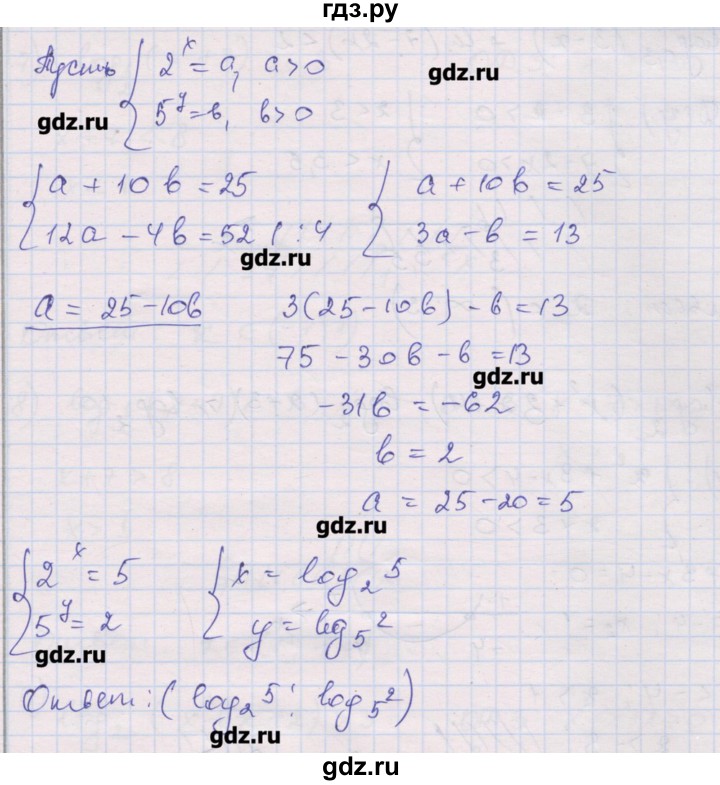 гдз.ру
Пусть { 2^x = a, a > 0
gdz.ru
5^y = b, b > 0
gdz.ru
{ a + 10b = 25 { a + 10b = 25
12a - 4b = 52 / : 4 3a - b = 13
gdz.ru
a = 25 - 10b 3(25 - 10b) - b = 13
75 - 30b - b = 13
gdz.ru
-31b = -62
b = 2
a = 25 - 20 = 5
gdz.ru
{ 2^x = 5 { x = log_2 5
5^y = 2 y = log_5 2
gdz.ru
Ответ: (log_2 5; log_5 2)
gdz.ru
gdz.ru